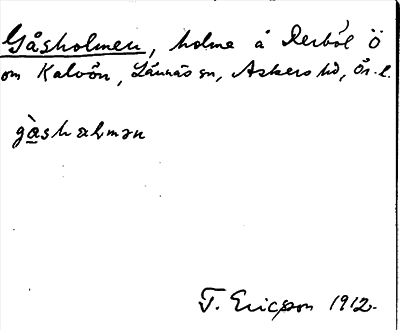 Gåsholmen, holme å Derból Ö
om Kalvön, Lännäs sn, Askers hd, Ör. l.
gåsholmən
T. Ericsson 1912.